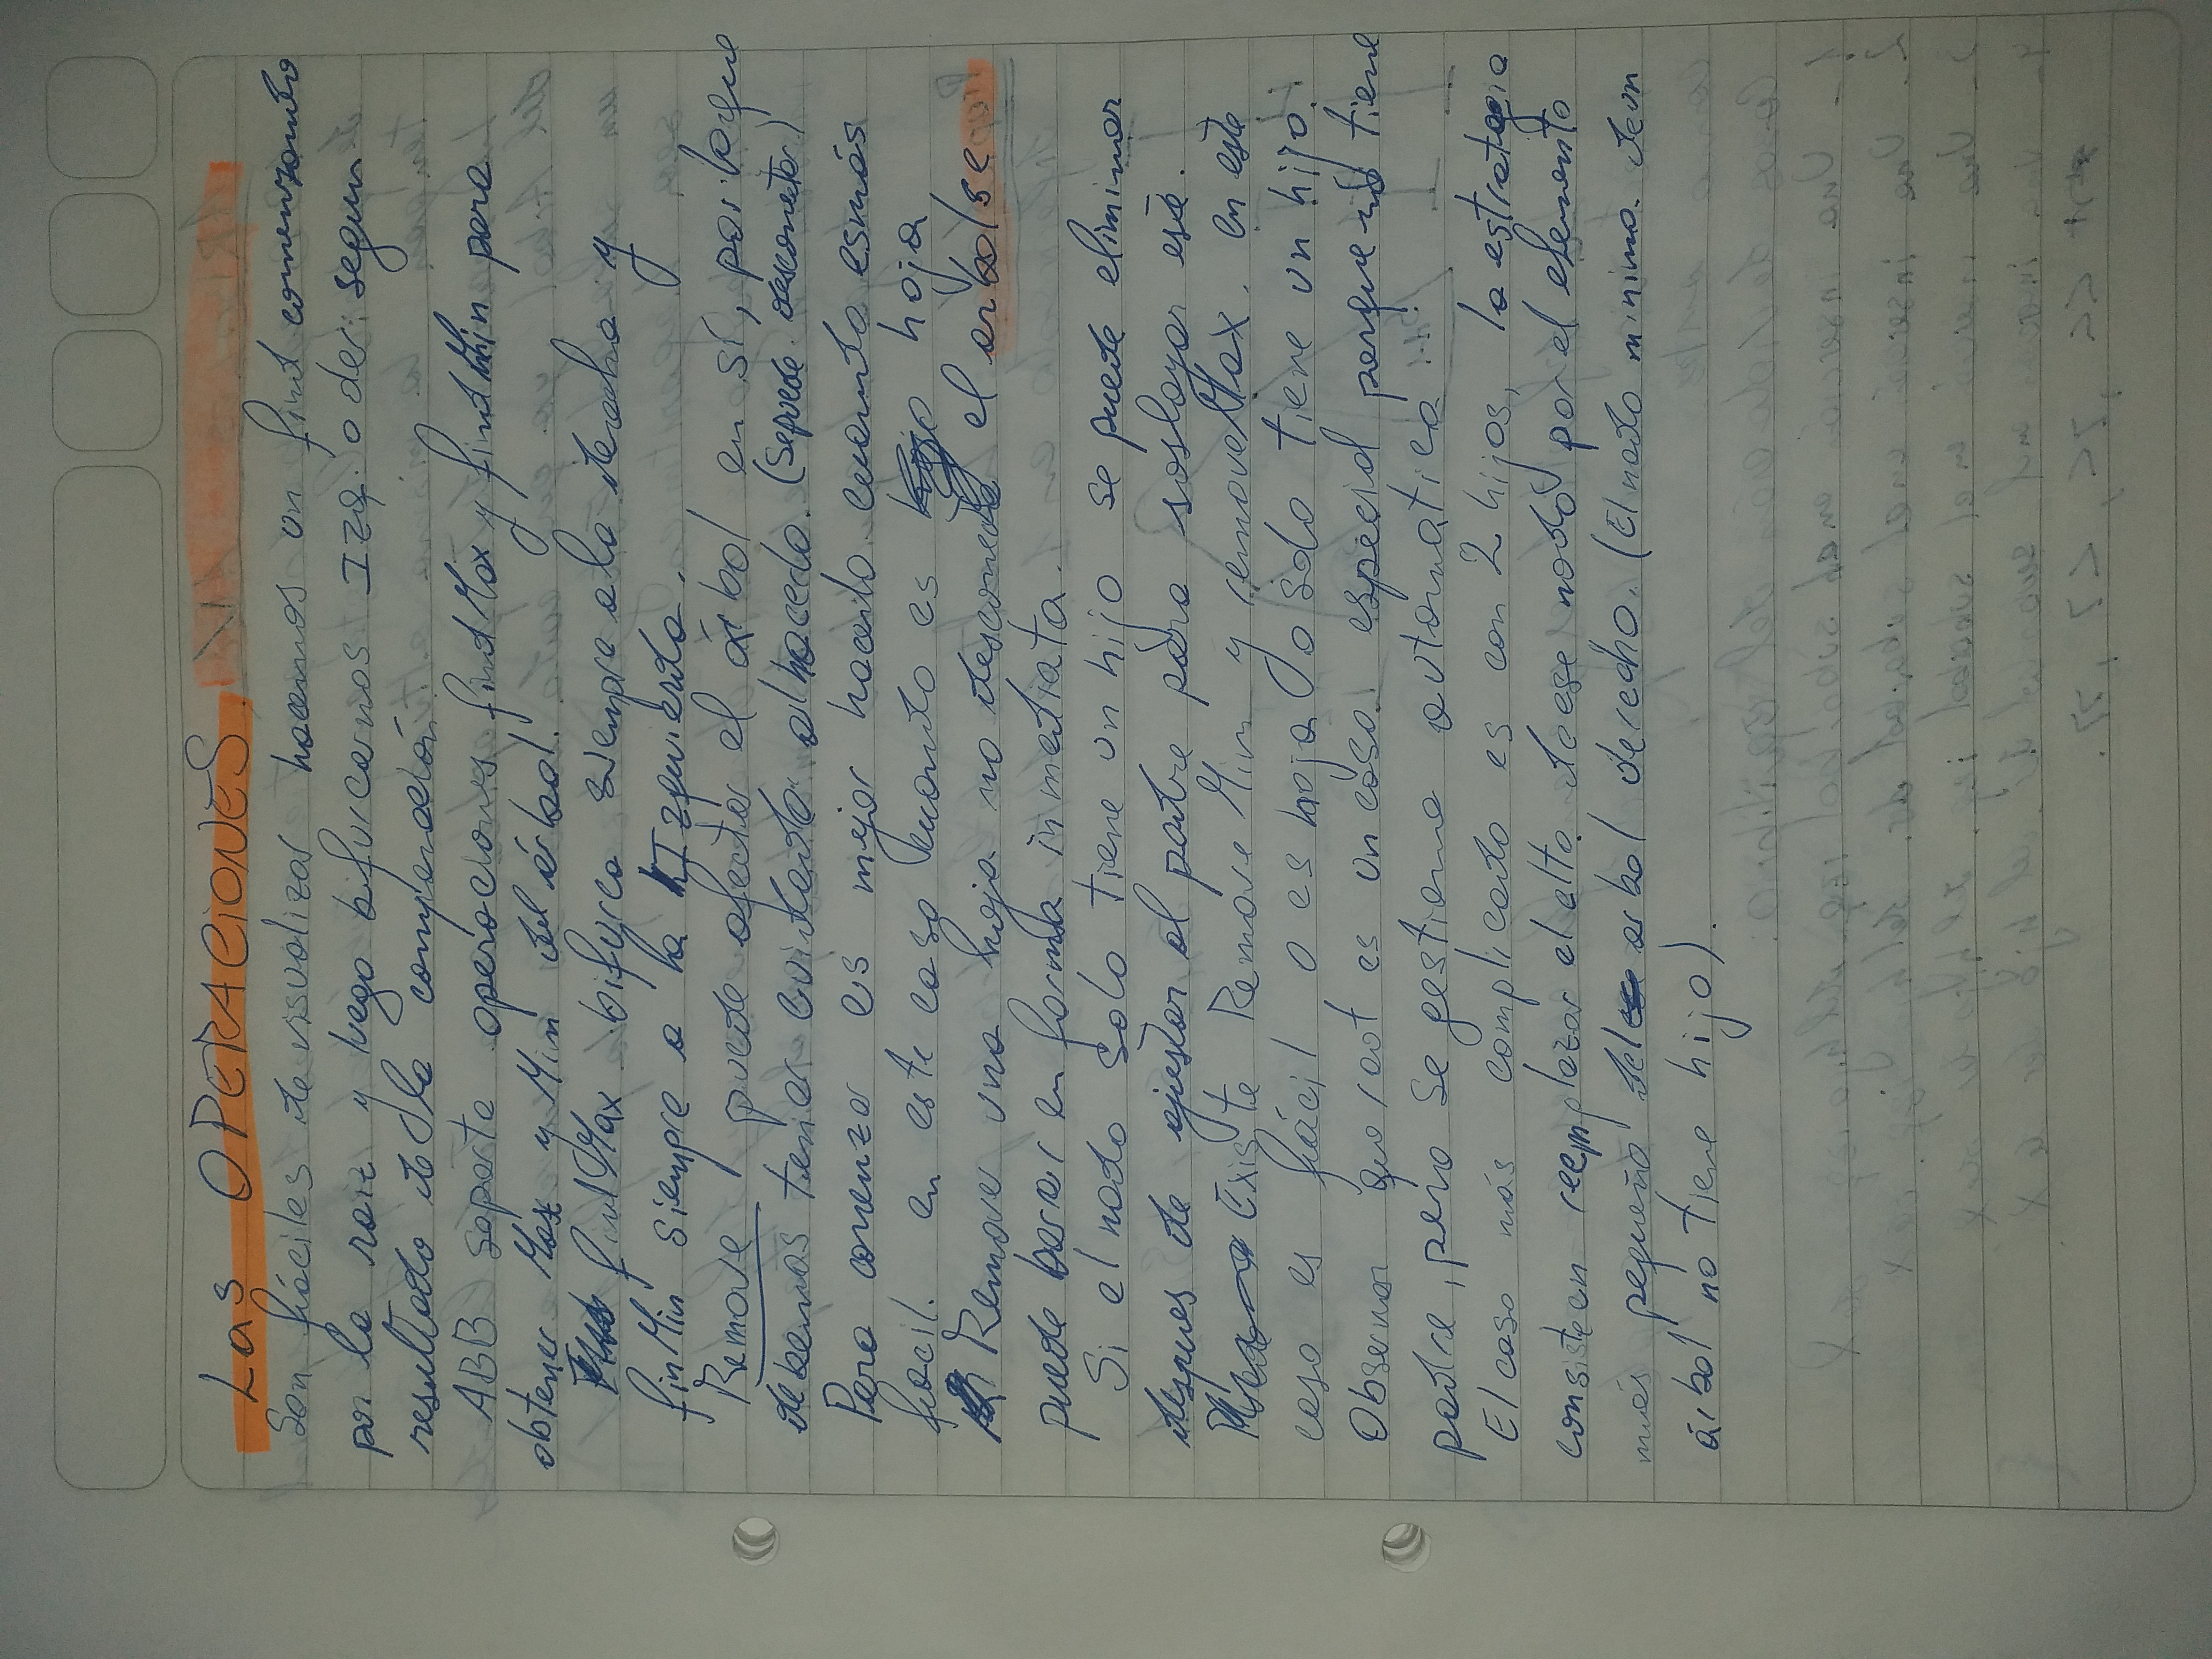 Las OPERACIONES.
Son fáciles de visualizar hacemos un find comenzando
por la raiz y luego bifurcamos Izq. o der. segun
resultado de la comparación.
ABB soporta operaciones findMax y findMin para
obtener Max y Min del árbol.
findMax bifurca siempre a la derecha y
finMin siempre a la Izquierda.
Remove puede afectar el árbol en sí, por lo que
debemos tener cuidado al hacerlo. (Se puede desconectar)
Para comenzar es mejor hacerlo cuando es más
facil. en este caso cuando es hoja
Remover una hoja no desconecta el arbol se
puede borrar en forma inmediata.
Si el nodo solo tiene un hijo se puede eliminar
despues de ajustar al padre para soslayar este.
Existe Remove Min y removeMax. en este
caso es fácil o es hoja o solo tiene un hijo.
Observar que root es un caso especial porque no tiene
padre, pero se gestiona automatica
El caso más complicado es con 2 hijos, la estrategia
consiste en reemplazar el elto. de ese nodo por el elemento
más pequeño del arbol derecho. (El nodo minimo de un
árbol no tiene hijo).